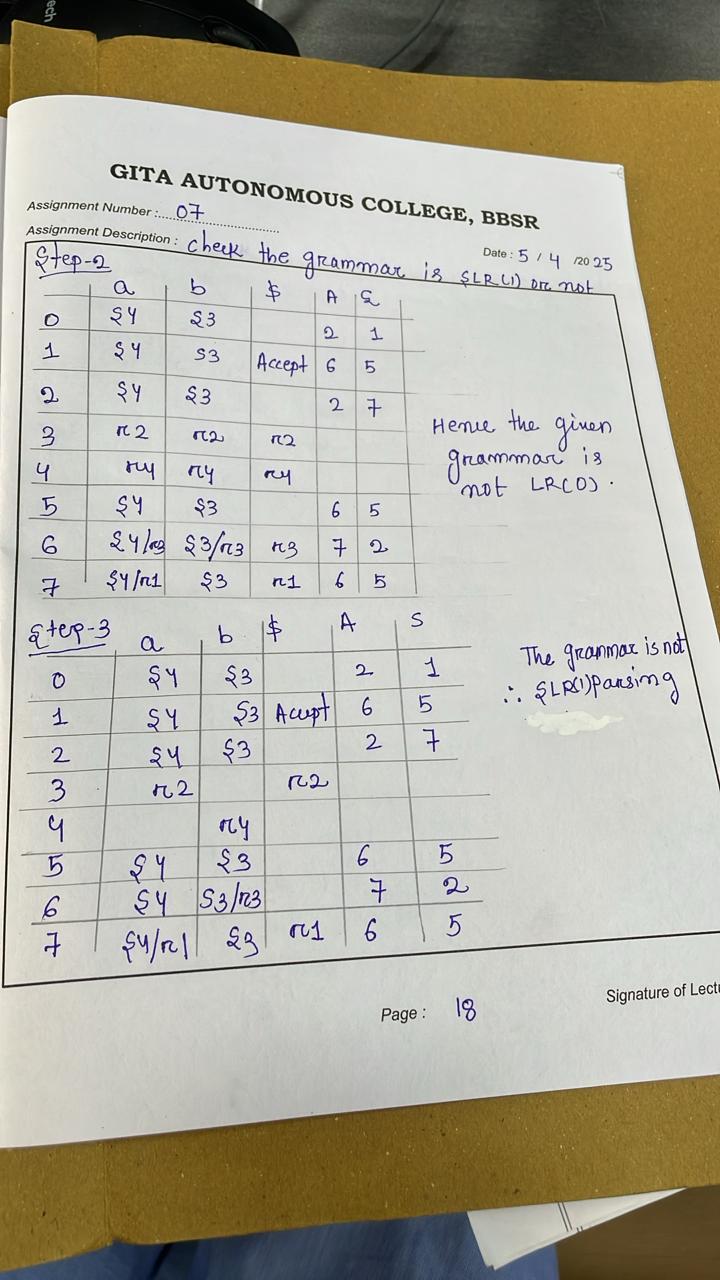 ech
GITA AUTONOMOUS COLLEGE, BBSR
Assignment Number : 07
Date : 5 / 4 /2025
Assignment Description : check the grammar is SLR(1) or not
Step-2
a b $ A S
0 S4 S3 2 1
1 S4 S3 Accept 6 5
2 S4 S3 2 7
3 r2 r2 r2
4 r4 r4 r4
5 S4 S3 6 5
6 S4/r3 S3/r3 r3 7 2
7 S4/r1 S3 r1 6 5
Hence the given
grammar is
not LR(0).
Step-3
a b $ A S
0 S4 S3 2 1
1 S4 S3 Accept 6 5
2 S4 S3 2 7
3 r2 r2
4 r4
5 S4 S3 6 5
6 S4 S3/r3 7 2
7 S4/r1 S3 r1 6 5
The grammar is not
∴ SLR(1) Parsing
Page : 18
Signature of Lectu